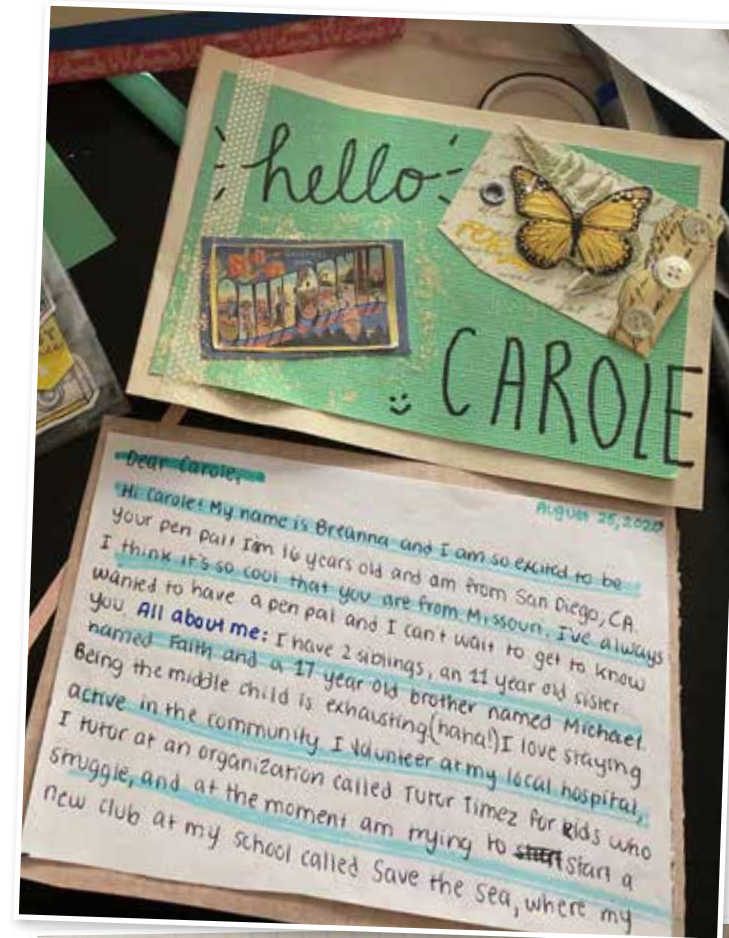 hello
FOR
CALIFORNIA
CAROLE
Dear Carole,
August 25, 2020
Hi Carole! My name is Breanna and I am so excited to be
your pen pal! I'm 16 years old and am from San Diego, CA.
I think it's so cool that you are from Missouri. I've always
wanted to have a pen pal and I can't wait to get to know
you. All about me: I have 2 siblings, an 11 year old sister
named Faith and a 17 year old brother named Michael.
Being the middle child is exhausting (haha!) I love staying
active in the community. I volunteer at my local hospital,
I tutor at an organization called Tutor Timez for kids who
struggle, and at the moment am trying to start a
new club at my school called Save the Sea, where my